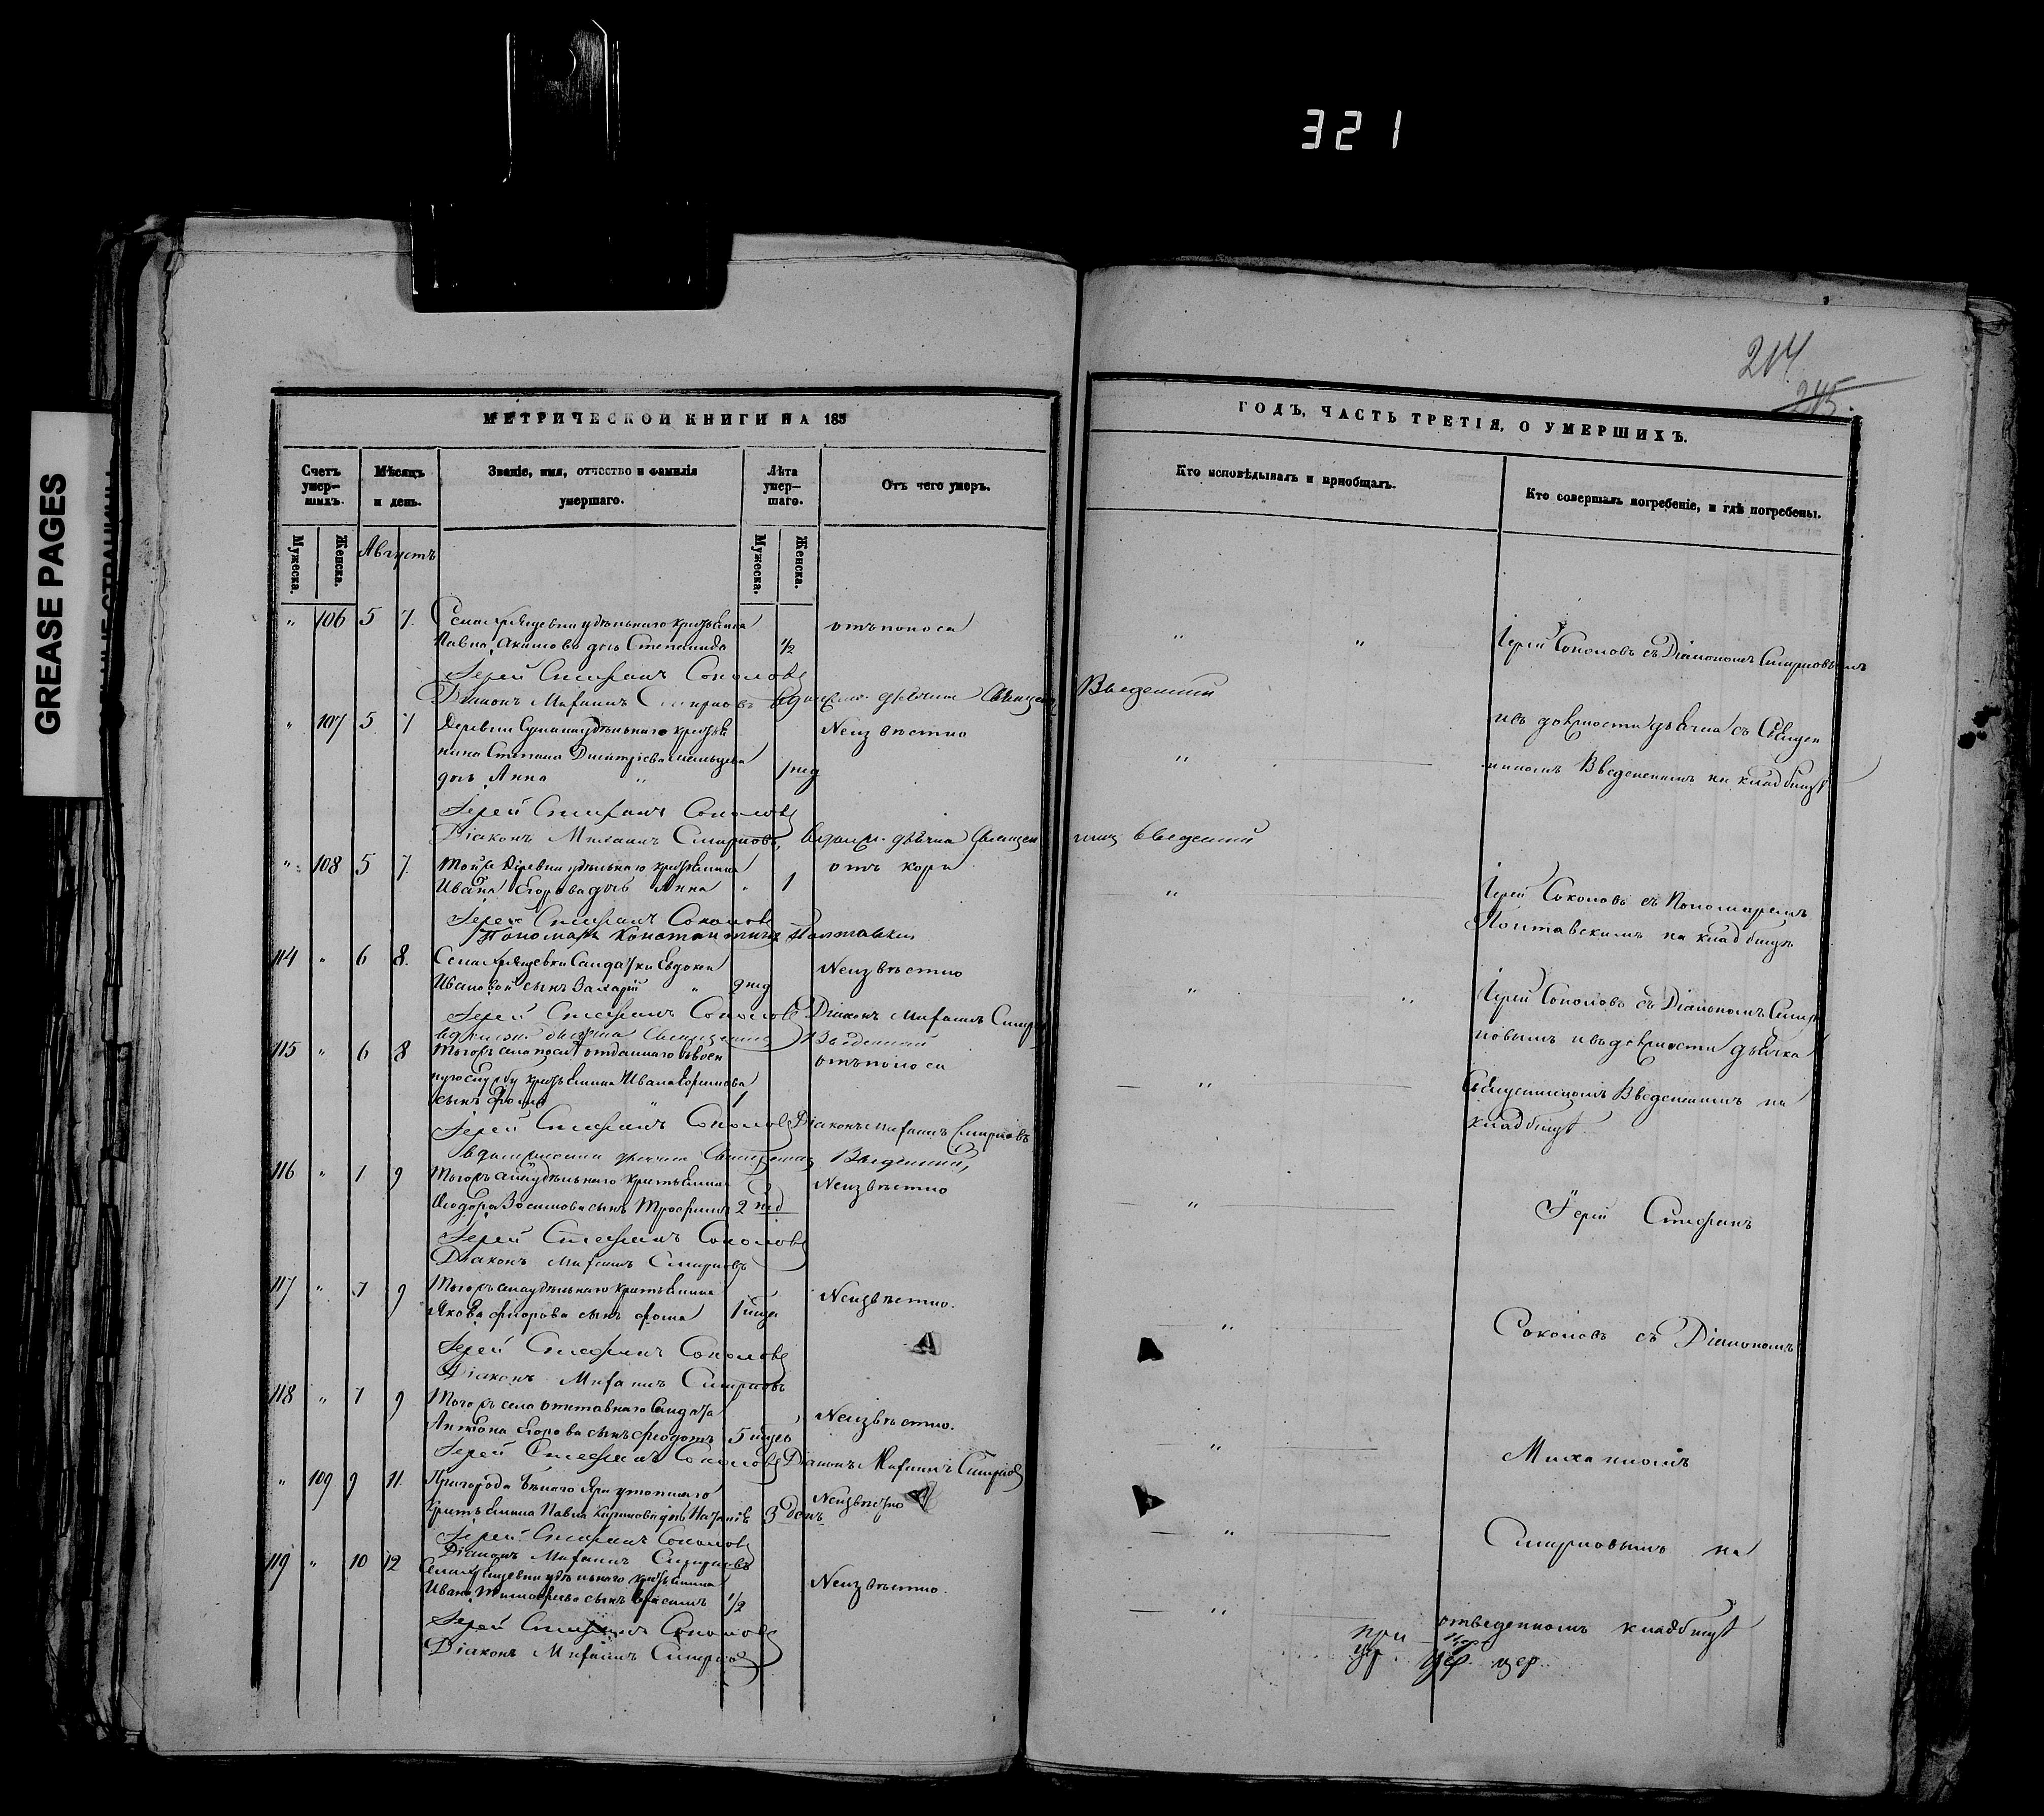 321
GREASE PAGES
214
215.
МЕТРИЧЕСКОЙ КНИГИ НА 185
ГОДЪ, ЧАСТЬ ТРЕТІЯ, О УМЕРШИХЪ.
Счетъ умер-шихъ.
Мѣсяцъ и день.
Званіе, имя, отчество и фамилія умершаго.
Лѣта умер-шаго.
Отъ чего умеръ.
Кто исповѣдывалъ и пріобщалъ.
Кто совершалъ погребеніе, и гдѣ погребены.
Мужеска.
Женска.
Августъ
Мужеска.
Женска.
" 106 5 7. удѣльнаго крестьянина отъ поноса
Павла Акимова дочь Степанида 1/2
Іерей Стефанъ Соколовъ
Діаконъ Михаилъ Смирновъ
Введенскій
Іерей Соколовъ съ Діакономъ Смирновымъ
" 107 5 7 Деревни удѣльнаго крестья Неизвѣстно
нина Степана Дмитріева
дочь Анна " 1 нед
Іерей Стефанъ Соколовъ
Діаконъ Михаилъ Смирновъ,
Введенскій
и въ должности дьячка съ Священ
никомъ Введенскимъ на кладбищѣ
" 108 5 7. Той же Деревни удѣльнаго крестьянина отъ кори
Ивана Егорова дочь Анна " 1
Іерей Стефанъ Соколовъ
Пономарь Константинъ Полтавскій
Іерей Соколовъ съ Пономаремъ
Полтавскимъ на кладбищѣ
114 " 6 8. Солдатки Евдокіи Неизвѣстно
Ивановой сынъ Захарій " 2 нед
Іерей Стефанъ Соколовъ Діаконъ Михаилъ Смирн
Введенскій
Іерей Соколовъ съ Діакономъ Смир
новымъ и въ должности дьячка
Священникомъ Введенскимъ на
кладбищѣ
115 " 6 8 Тогожъ села отданнаго въ воен отъ поноса
ную службу крестьянина Ивана Ефимова
сынъ Фома " 1
Іерей Стефанъ Соколовъ Діаконъ Михаилъ Смирновъ
въ должности дьячка Введенскій
116 " 7 9 Тогожъ села удѣльнаго крестьянина Неизвѣстно
Ѳеодора Зосимова сынъ Трофимъ 2 нед
Іерей Стефанъ Соколовъ
Діаконъ Михаилъ Смирновъ
Іерей Стефанъ
117 " 7 9 Тогожъ села удѣльнаго крестьянина Неизвѣстно.
Якова сынъ Фома 1 нед
Іерей Стефанъ Соколовъ
Діаконъ Михаилъ Смирновъ
Соколовъ съ Діакономъ
118 " 7 9 Тогожъ села отставнаго солдата Неизвѣстно.
Антона Егорова сынъ Ѳеодотъ 5
Іерей Стефанъ Соколовъ Діаконъ Михаилъ Смирновъ
Михаиломъ
" 109 9 11. Пригорода Бѣлаго Яра Неизвѣстно
крестьянина Павла дочь Наталія 3 день
Іерей Стефанъ Соколовъ
Діаконъ Михаилъ Смирновъ
Смирновымъ на
119 " 10 12 удѣльнаго крестьянина Неизвѣстно.
Ивана Тимофеева сынъ 1/2
Іерей Стефанъ Соколовъ
Діаконъ Михаилъ Смирновъ
отведенномъ кладбищѣ
при
цер.